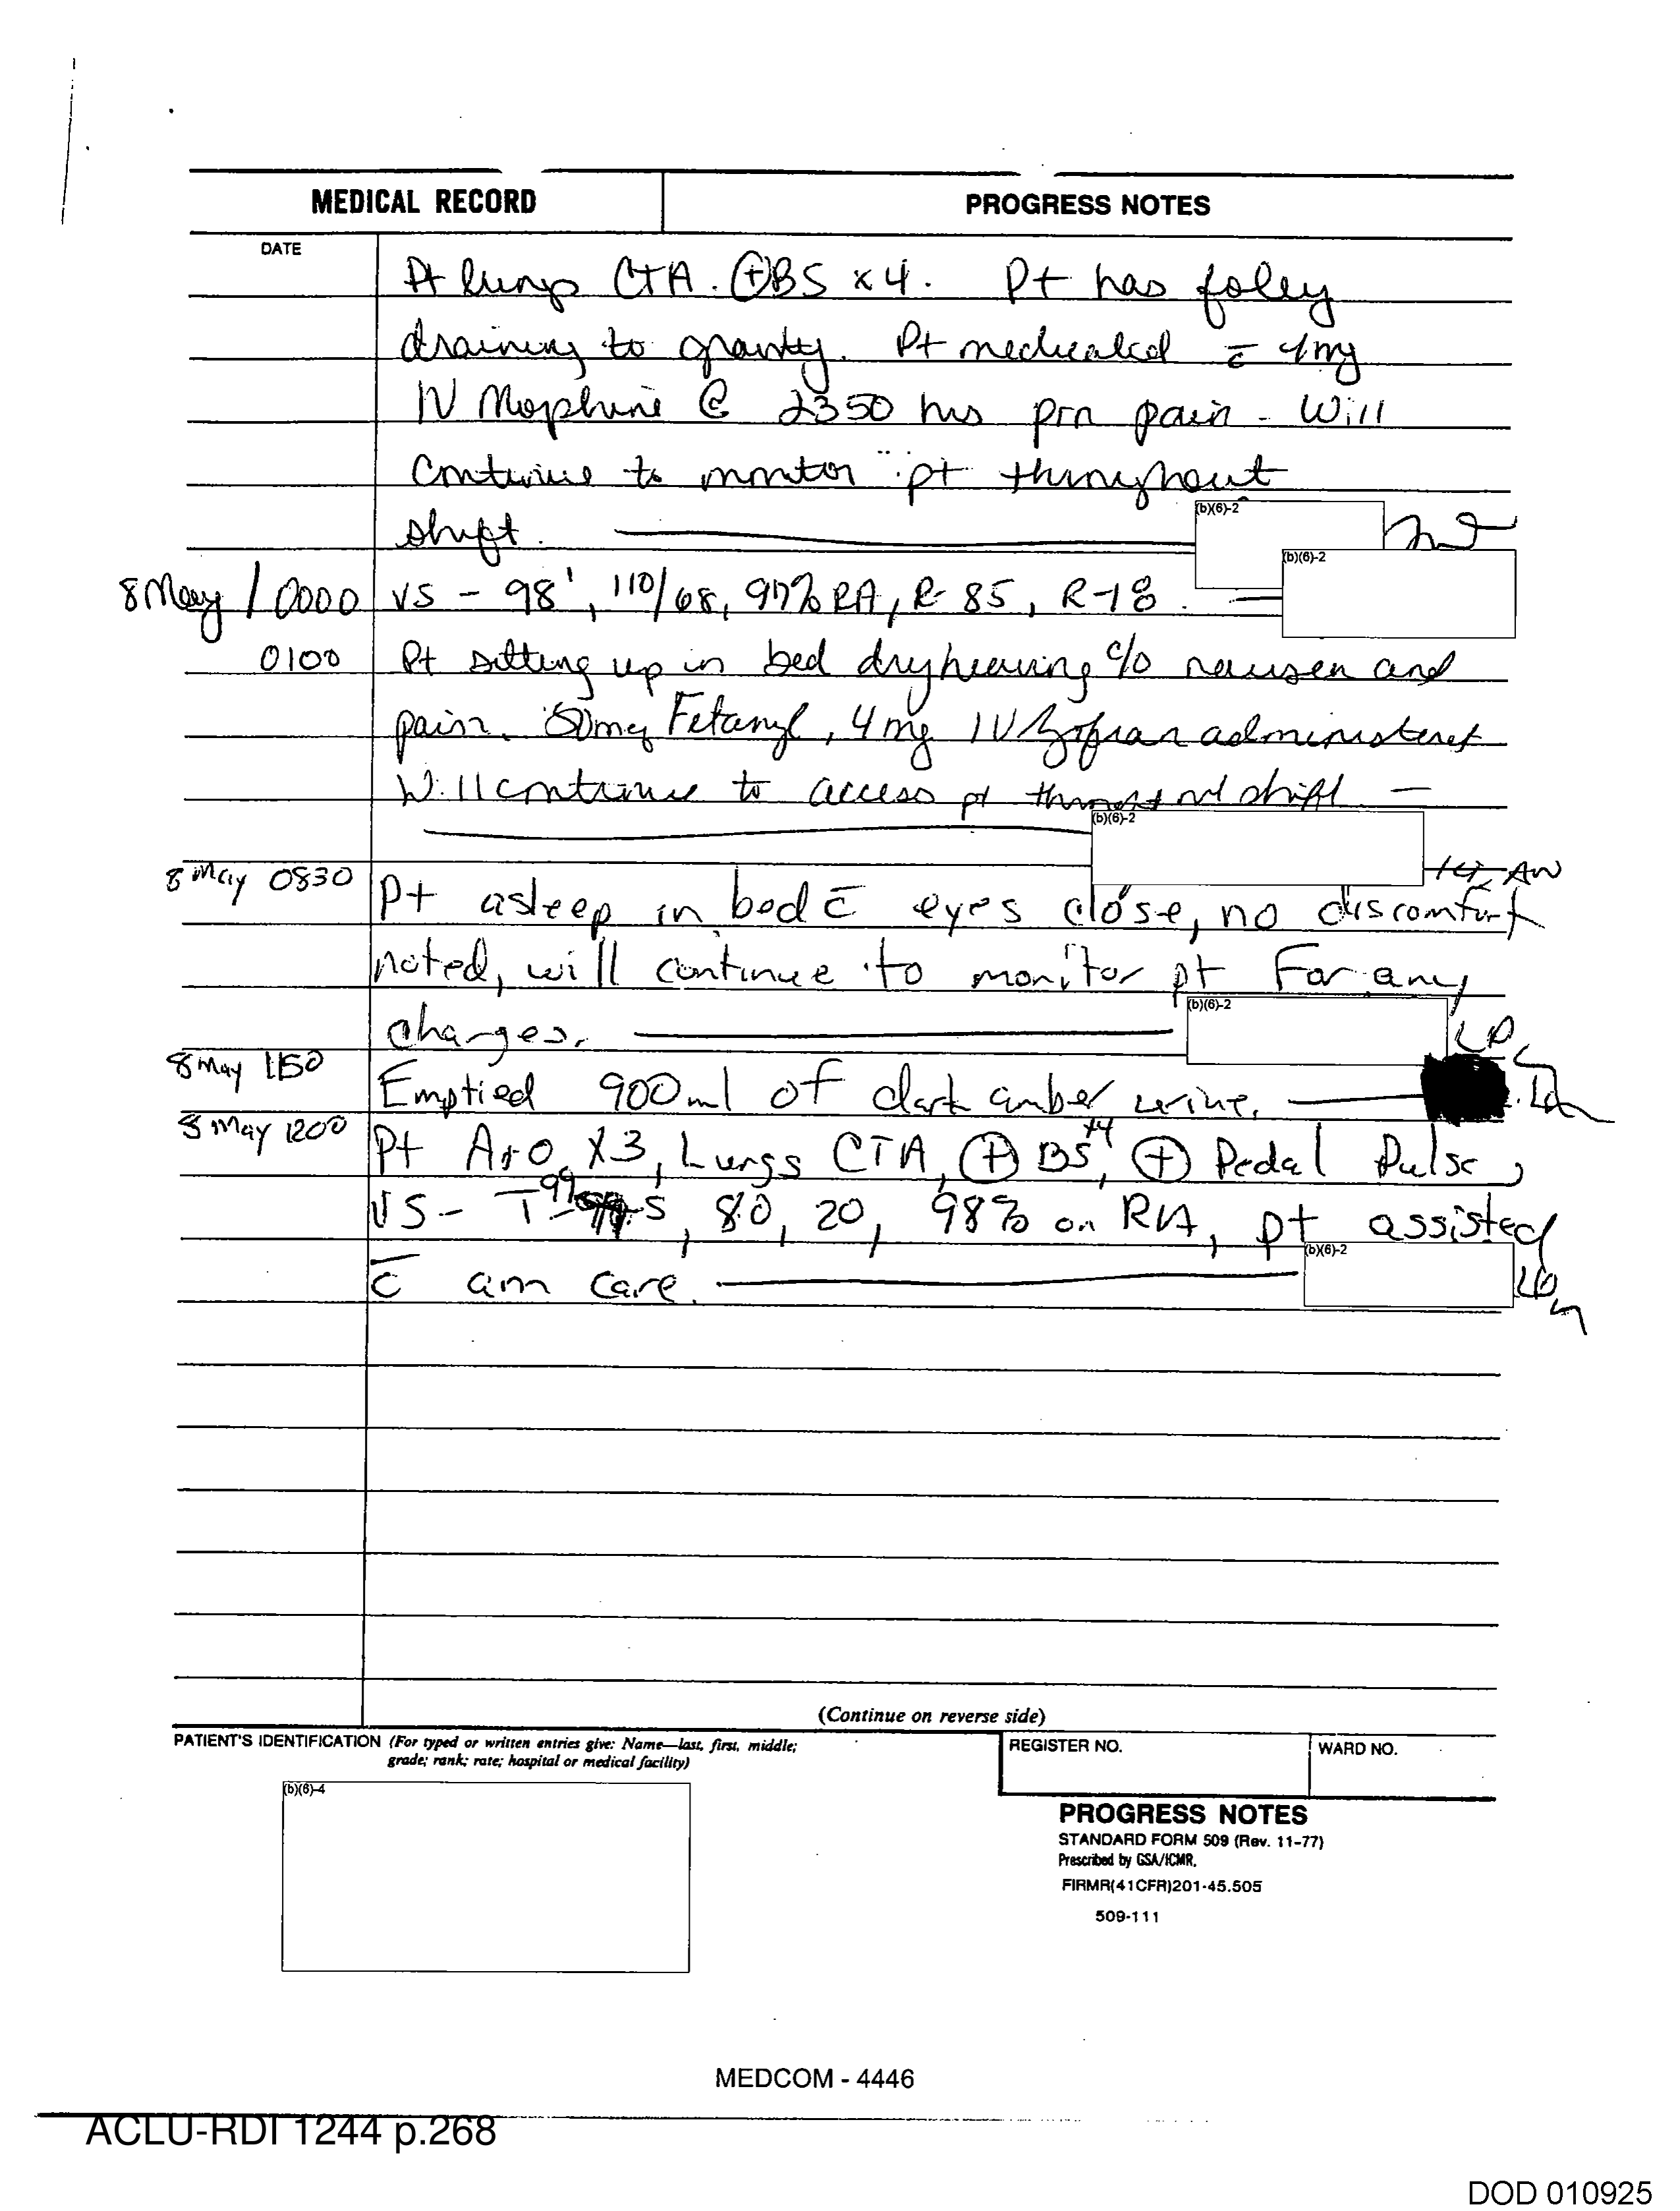 MEDICAL RECORD
PROGRESS NOTES
DATE
Pt lungs CTA. ⊕BS x 4. Pt has foley
draining to gravity. Pt medicated c̄ 4mg
IV Morphine @ 2350 hrs prn pain - Will
continue to monitor pt throughout
shift.
(b)(6)-2
(b)(6)-2
8 May / 0000 VS - 98', 110/68, 97% RA, R- 85, R-18.
0100 Pt sitting up in bed dryheaving c/o nausea and
pain. 50mcg Fetanyl, 4 mg IV Zofran administered
Will continue to access pt shift
(b)(6)-2
8 May 0830 Pt asleep in bed c̄ eyes close, no discomfort
noted, will continue to monitor pt For any
(b)(6)-2
changes.
8 May 1150 Emptied 900ml of dark amber urine.
8 May 1200 Pt A+O X3, Lungs CTA, ⊕ BS x4, ⊕ Pedal Pulse,
VS- T 99, 80, 20, 98% on RA, pt assisted
(b)(6)-2
c̄ am care.
(Continue on reverse side)
PATIENT'S IDENTIFICATION (For typed or written entries give: Name—last, first, middle;
grade; rank; rate; hospital or medical facility)
REGISTER NO.
WARD NO.
(b)(6)-4
PROGRESS NOTES
STANDARD FORM 509 (Rev. 11-77)
Prescribed by GSA/ICMR,
FIRMR(41CFR)201-45.505
509-111
MEDCOM - 4446
ACLU-RDI 1244 p.268
DOD 010925